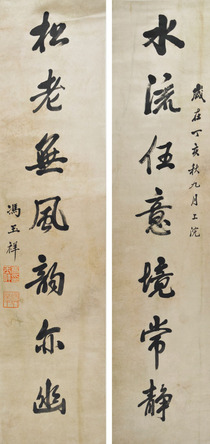 水流任意境常静
歲在丁亥秋九月上浣
松老無風韵亦幽
馮玉祥